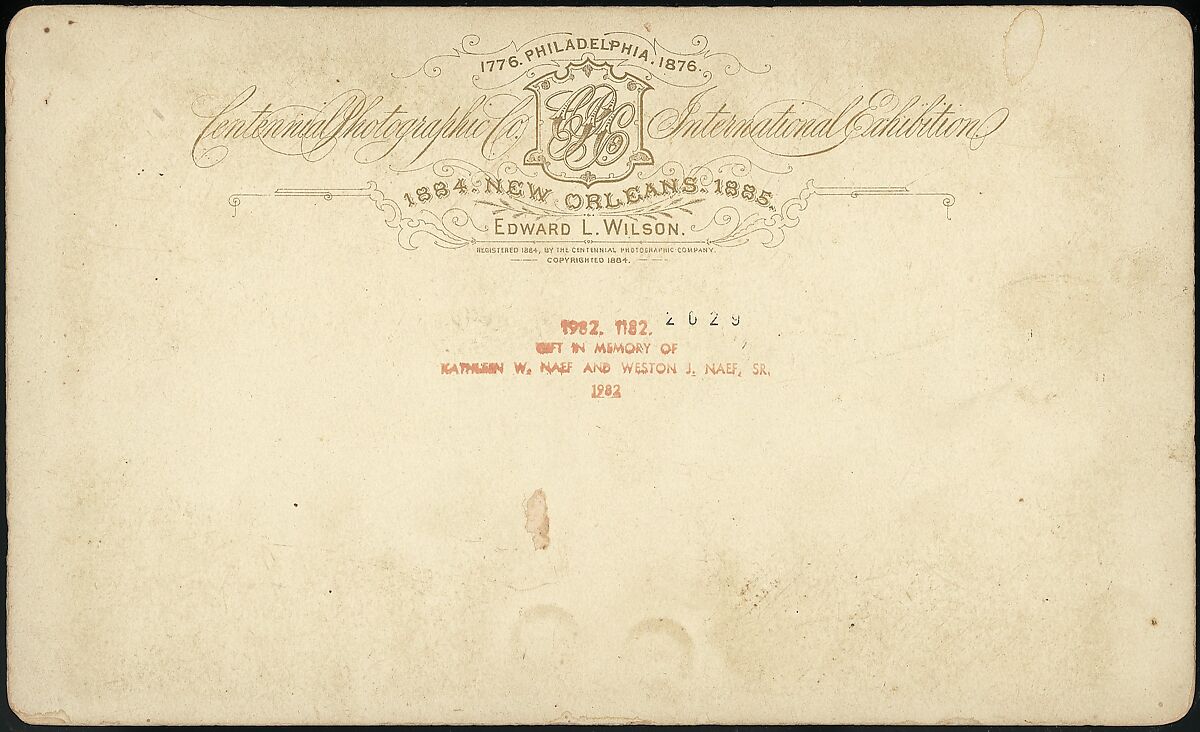 1776. PHILADELPHIA. 1876.
Centennial Photographic Co. International Exhibition
CPC
1884. NEW ORLEANS. 1885.
EDWARD L. WILSON.
REGISTERED 1884, BY THE CENTENNIAL PHOTOGRAPHIC COMPANY.
COPYRIGHTED 1884.
1982. 1182. 2029
GIFT IN MEMORY OF
KATHLEEN W. NAEF AND WESTON J. NAEF, SR.
1982